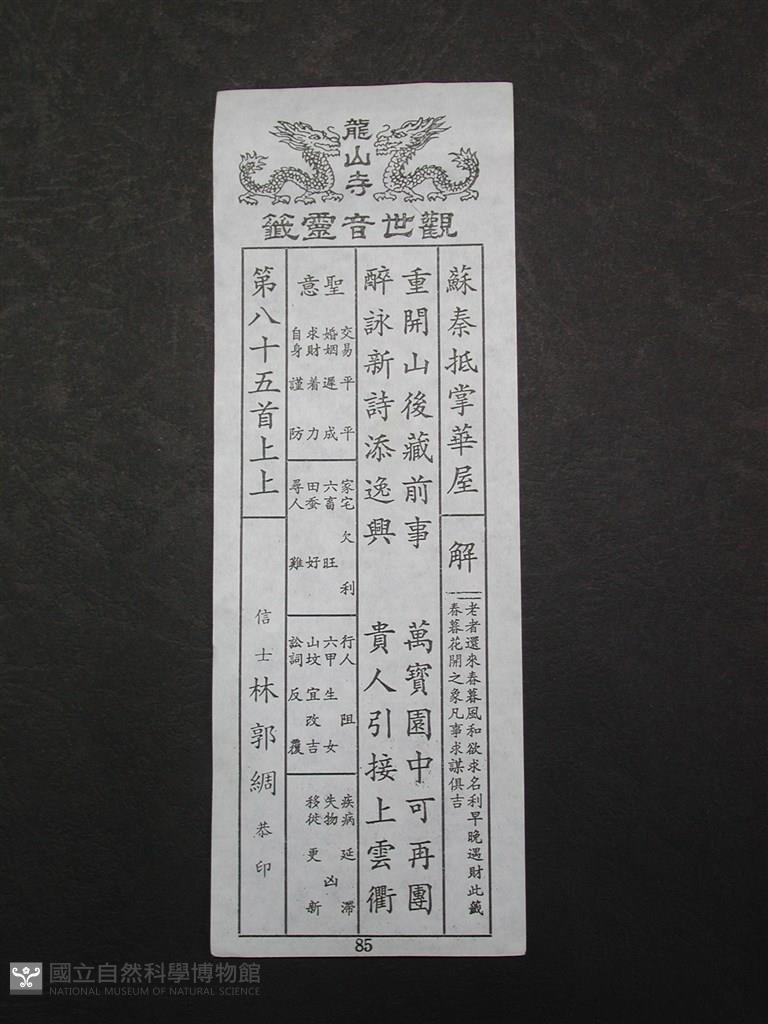 龍山寺
觀世音靈籤
蘇秦抵掌華屋
解
老者還來春暮風和欲求名利早晚遇財此籤
春暮花開之象凡事求謀俱吉
重開山後藏前事 萬寶園中可再團
醉詠新詩添逸興 貴人引接上雲衢
聖意
交易平平
婚姻遲成
求財着力
自身謹防
家宅欠利
六畜旺
田蚕好
尋人難
行人阻
六甲生女
山坟宜改吉
訟詞反覆
疾病延滯
失物凶
移徙更新
第八十五首上上
信士林郭綢恭印
85
國立自然科學博物館
NATIONAL MUSEUM OF NATURAL SCIENCE